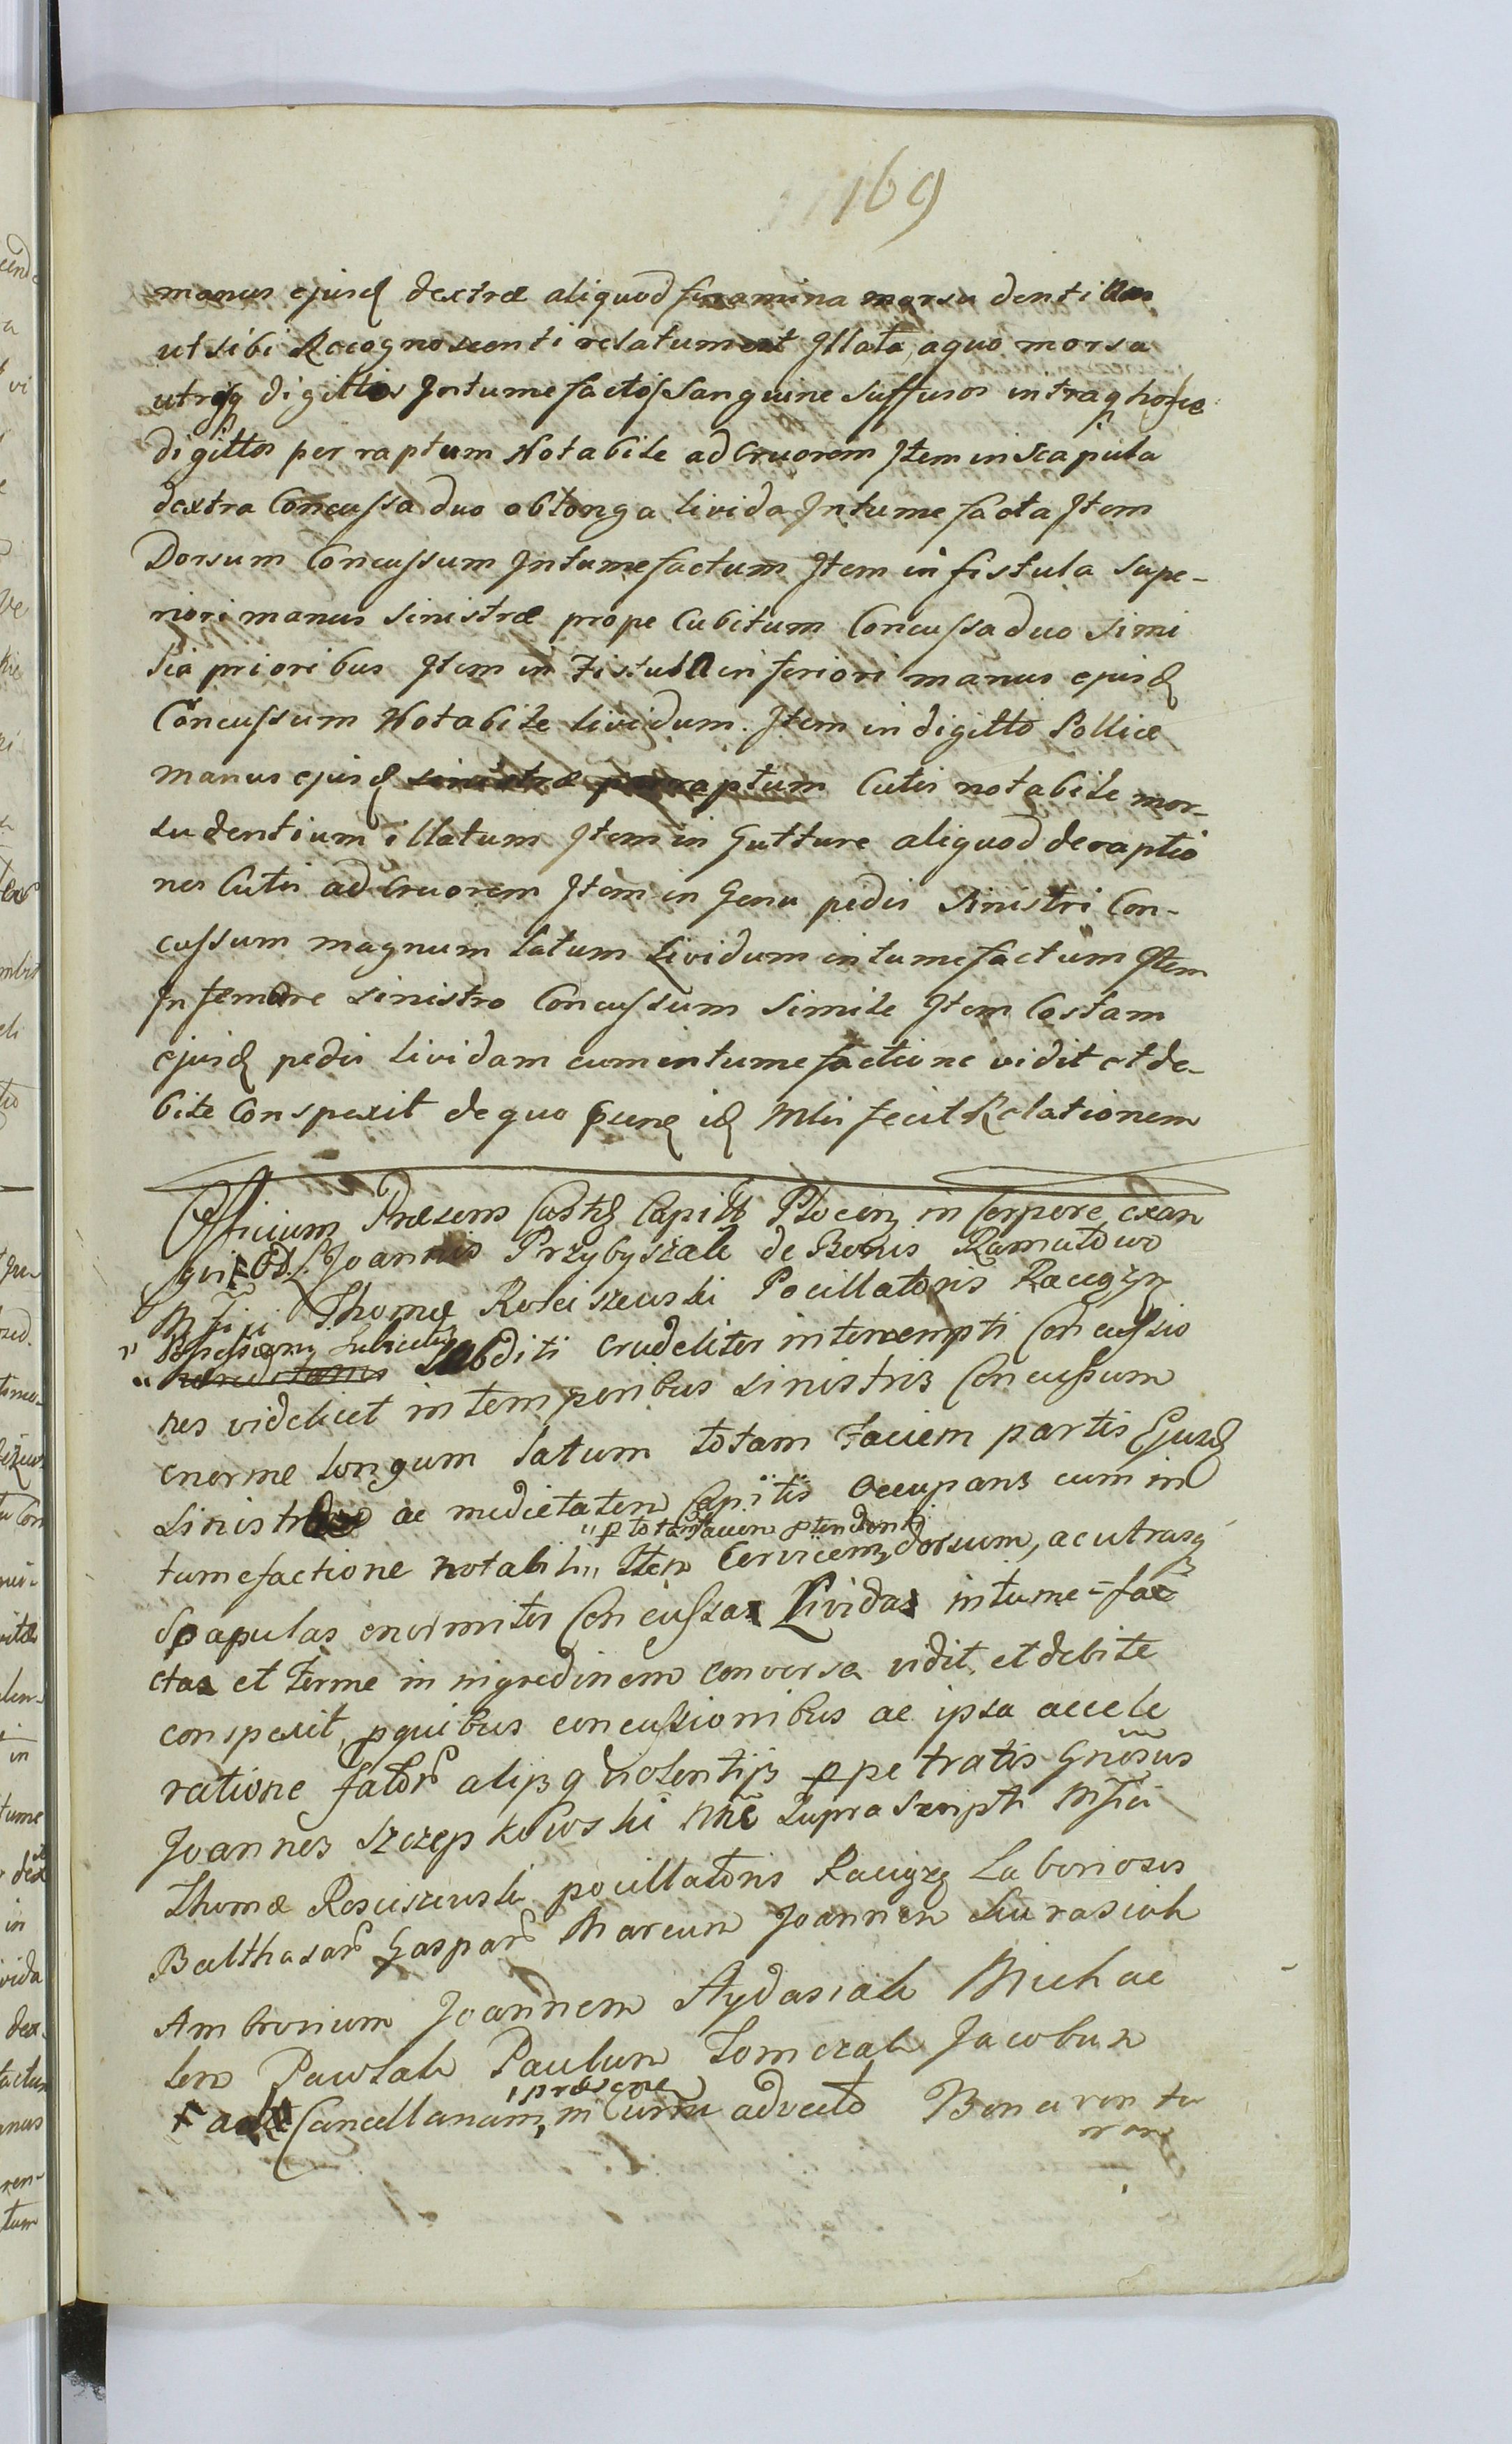 169
manus ejusd dextræ aliquod foramina morsu dentium
ut sibi Recognoscenti relatum est Illata, a quo morsu
utrosq digittos Intumefactos Sanguine Suffusos intra q hosce
digittos per raptum Notabile ad Cruorem Item in Scapula
dextra Concussa duo oblonga livida Intumefacta Item
Dorsum Concussum Intumefactum Item in fistula Supe-
riori manus Sinistræ prope Cubitum Concussa duo Simi
lia prioribus Item in Fistula inferiori manus ejusd
Concussum Notabile lividum. Item in digitto Pollice
manus ejusd sinistræ per raptum Cutis notabile mor-
su dentium illatum Item in Gutture aliquod deraptio
nes Cutis ad Cruorem Item in Genu pedis Sinistri Con-
cussum magnum latum Lividum intumefactum Item
In femore Sinistro Concussum Simile Item Costam
ejusd pedis lividam cum intumefactione vidit et de-
bite Conspexit de quo id Mlis fecit Relationem
Officium Præsens Castr Capitt Plocen in Corpore exan
gui Joannis Przybyszak de Bonis Ramutowo
Mfici Thomæ Rosciszewski Pocillatoris Raciąż
Possessionis Subiectis
hæreditariis Subditi crudeliter interempti Concussio
nes videlicet in temporibus sinistris Concussum
enorme longum latum totam Faciem partis Ejusd
Sinistræ ac medietatem Capitis occupans cum in
p totam faciem ptendenti
tumefactione notabili Item Cervicem, dorsum, ac utrasq
Scapulas enormiter Concussas Lividas intume-fac
ctas et Ferme in nigredinem conversa vidit et debite
conspexit, p quibus concussionibus ac ipsa accele
ratione fator alijsq violentijs ppetratis Gnosus
Joannes Szczepkowski Nne Suprascripti Mfici
Thomæ Rosciszewski pocillatoris Raciąż Laboriosos
Balthasar Gaspar Marcum Joannem Skurasiak
Ambrosium Joannem Aydasiak Michae
lem Pawlak Paulum Tomczak Jacobum
præsene
ad Cancellariam, in Curru advecto Bonaventu
ram